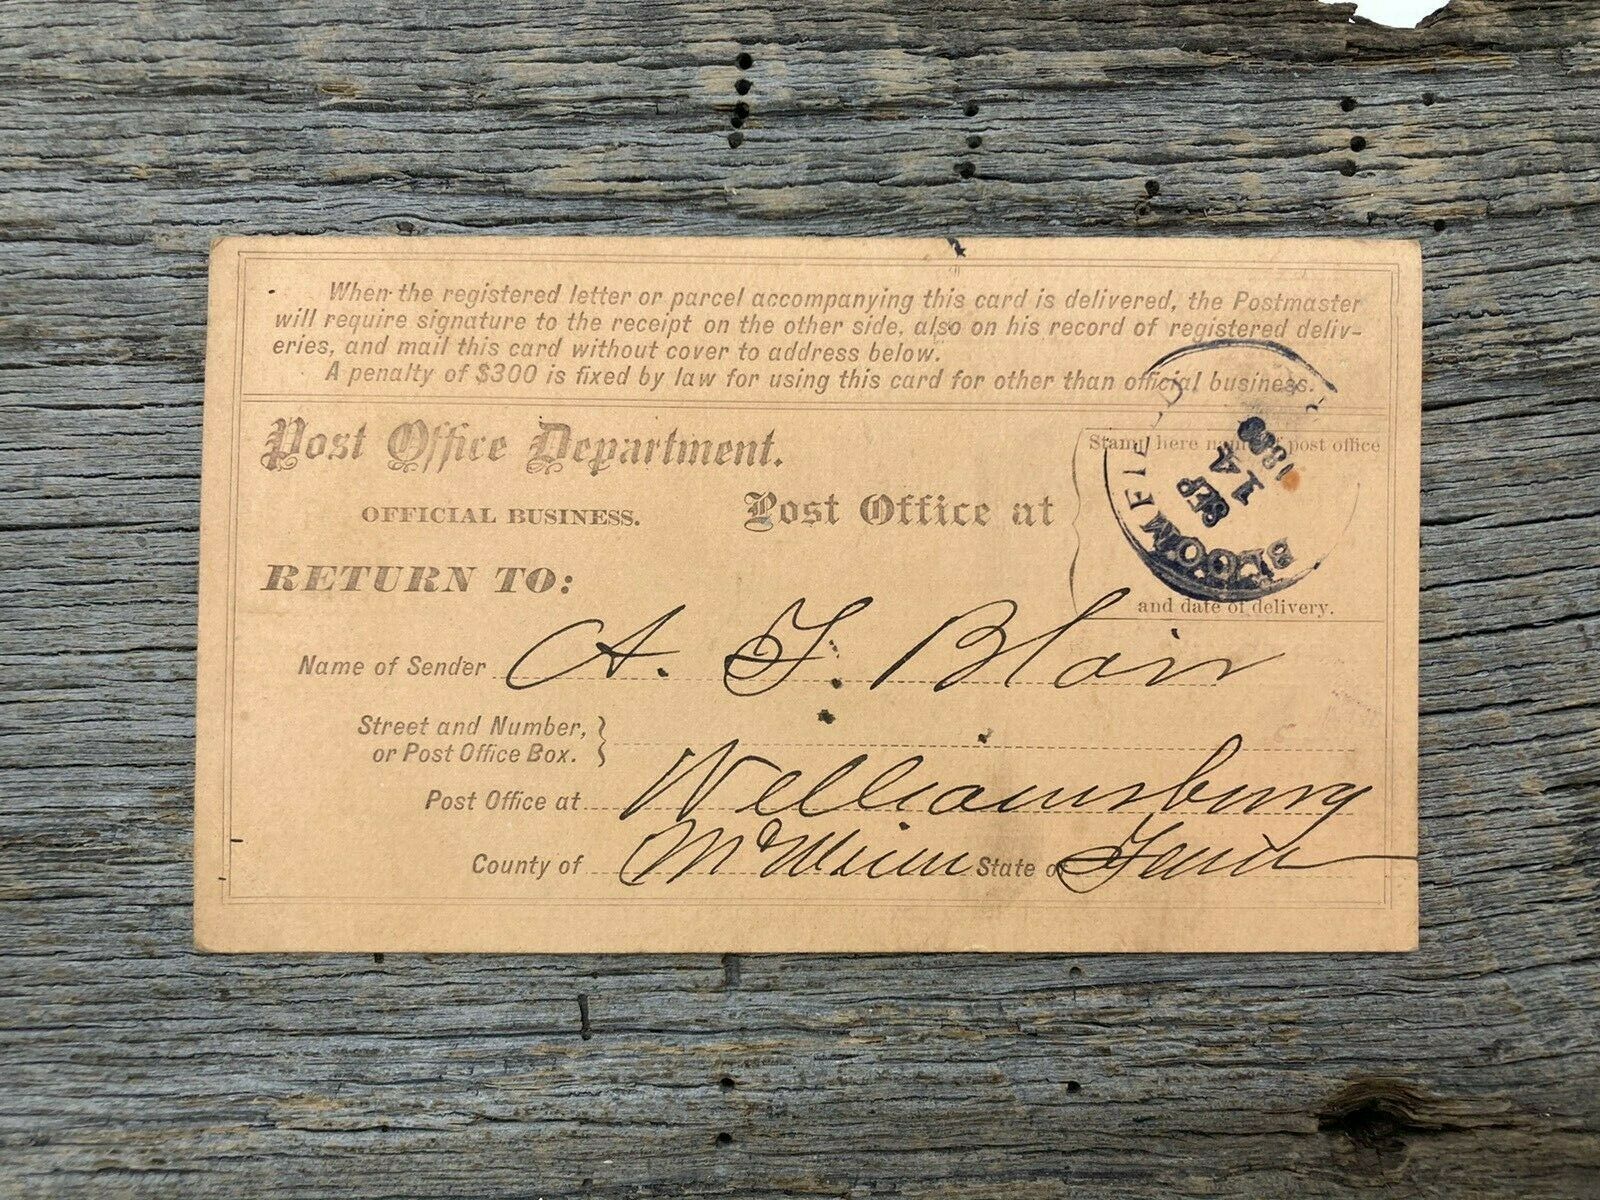 When the registered letter or parcel accompanying this card is delivered, the Postmaster
will require signature to the receipt on the other side, also on his record of registered deliv-
eries, and mail this card without cover to address below.
A penalty of $300 is fixed by law for using this card for other than official business.
Post Office Department.
OFFICIAL BUSINESS.
Post Office at
Stamp here name of post office
BLOOMFIELD
SEP
1 A
and date of delivery.
RETURN TO:
Name of Sender A. F. Blair
Street and Number,
or Post Office Box.
Post Office at Williamsburg
County of McMinn State of Tenn